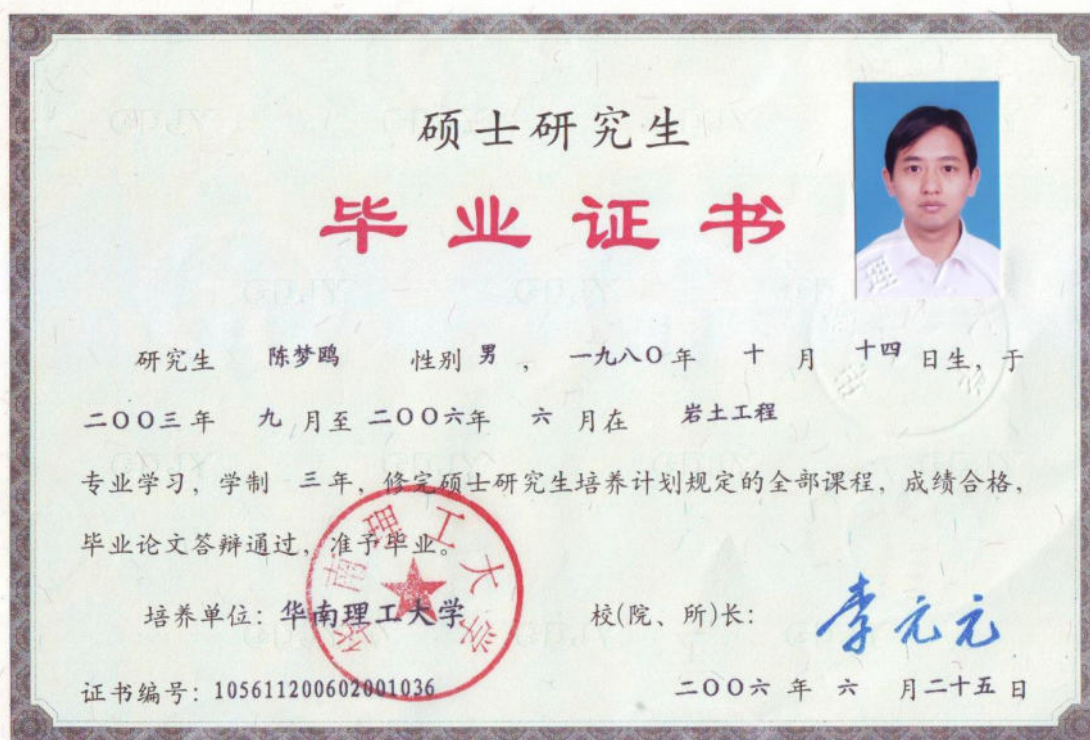 硕士研究生
毕业证书
研究生 陈梦鸥 性别 男 ， 一九八〇年 十 月 十四 日生，于
二〇〇三年 九 月至 二〇〇六年 六 月在 岩土工程
专业学习，学制 三年，修完硕士研究生培养计划规定的全部课程，成绩合格，
毕业论文答辩通过，准予毕业。
华南理工大学
培养单位：华南理工大学 校(院、所)长： 李元元
证书编号：105611200602001036 二〇〇六 年 六 月二十五日